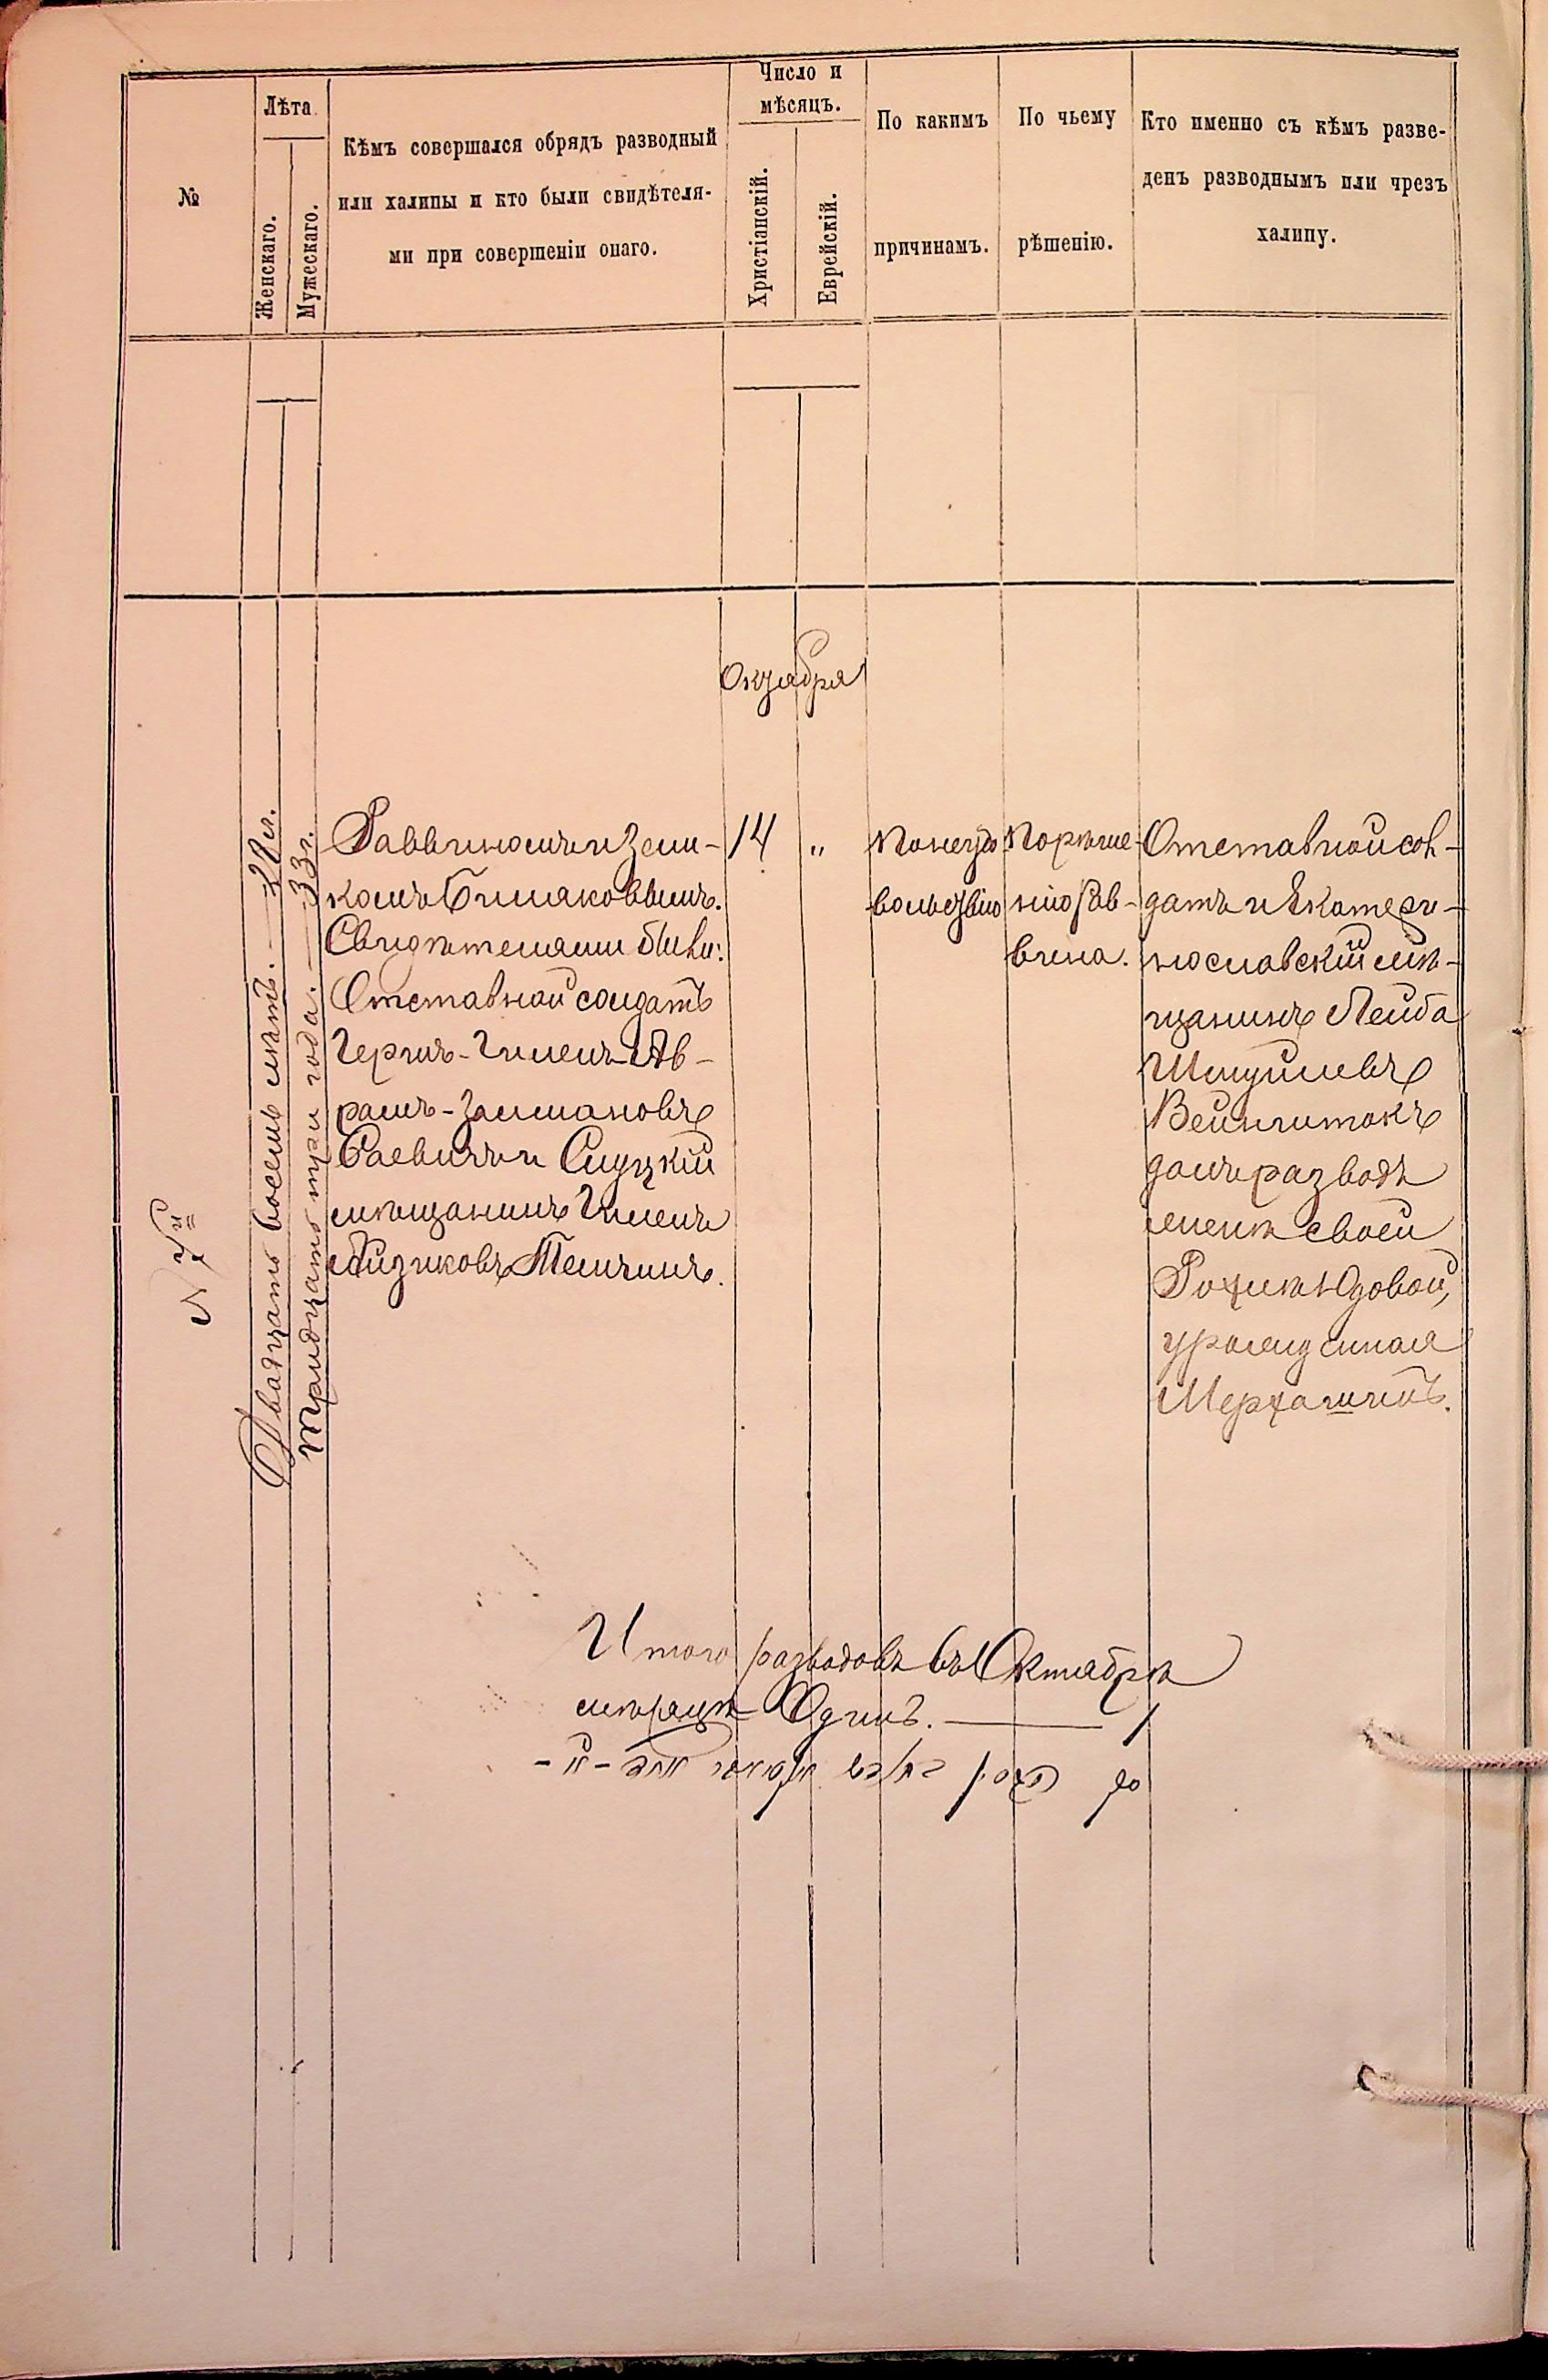 №
Лѣта
Женскаго.
Мужескаго.
Кѣмъ совершался обрядъ разводный
или халицы и кто были свидѣтеля-
ми при совершеніи онаго.
Число и
мѣсяцъ.
Христіанскій.
Еврейскій.
По какимъ
причинамъ.
По чьему
рѣшенію.
Кто именно съ кѣмъ разве-
денъ разводнымъ или чрезъ
халицу.
Октября
Двадцать восемь лѣтъ. — 28 л.
Тридцать три года. — 33 г.
Раввиномъ
Свидѣтелями были:
Отставной солдатъ
Герцъ-Гилелъ Ав-
рамъ-Залмановъ
и Слуцкій
мѣщанинъ Гилелъ
Айзиковъ
14 "
По неудо-
вольствію
По рѣше-
нію рав-
вина.
Отставной сол-
датъ и Екатери-
нославскій мѣ-
щанинъ Лейба
Шмуйлевъ
далъ разводъ
женѣ своей
Юдовой,
урожденная
Итого разводовъ въ Октябрѣ
мѣсяцѣ Одинъ. — 1